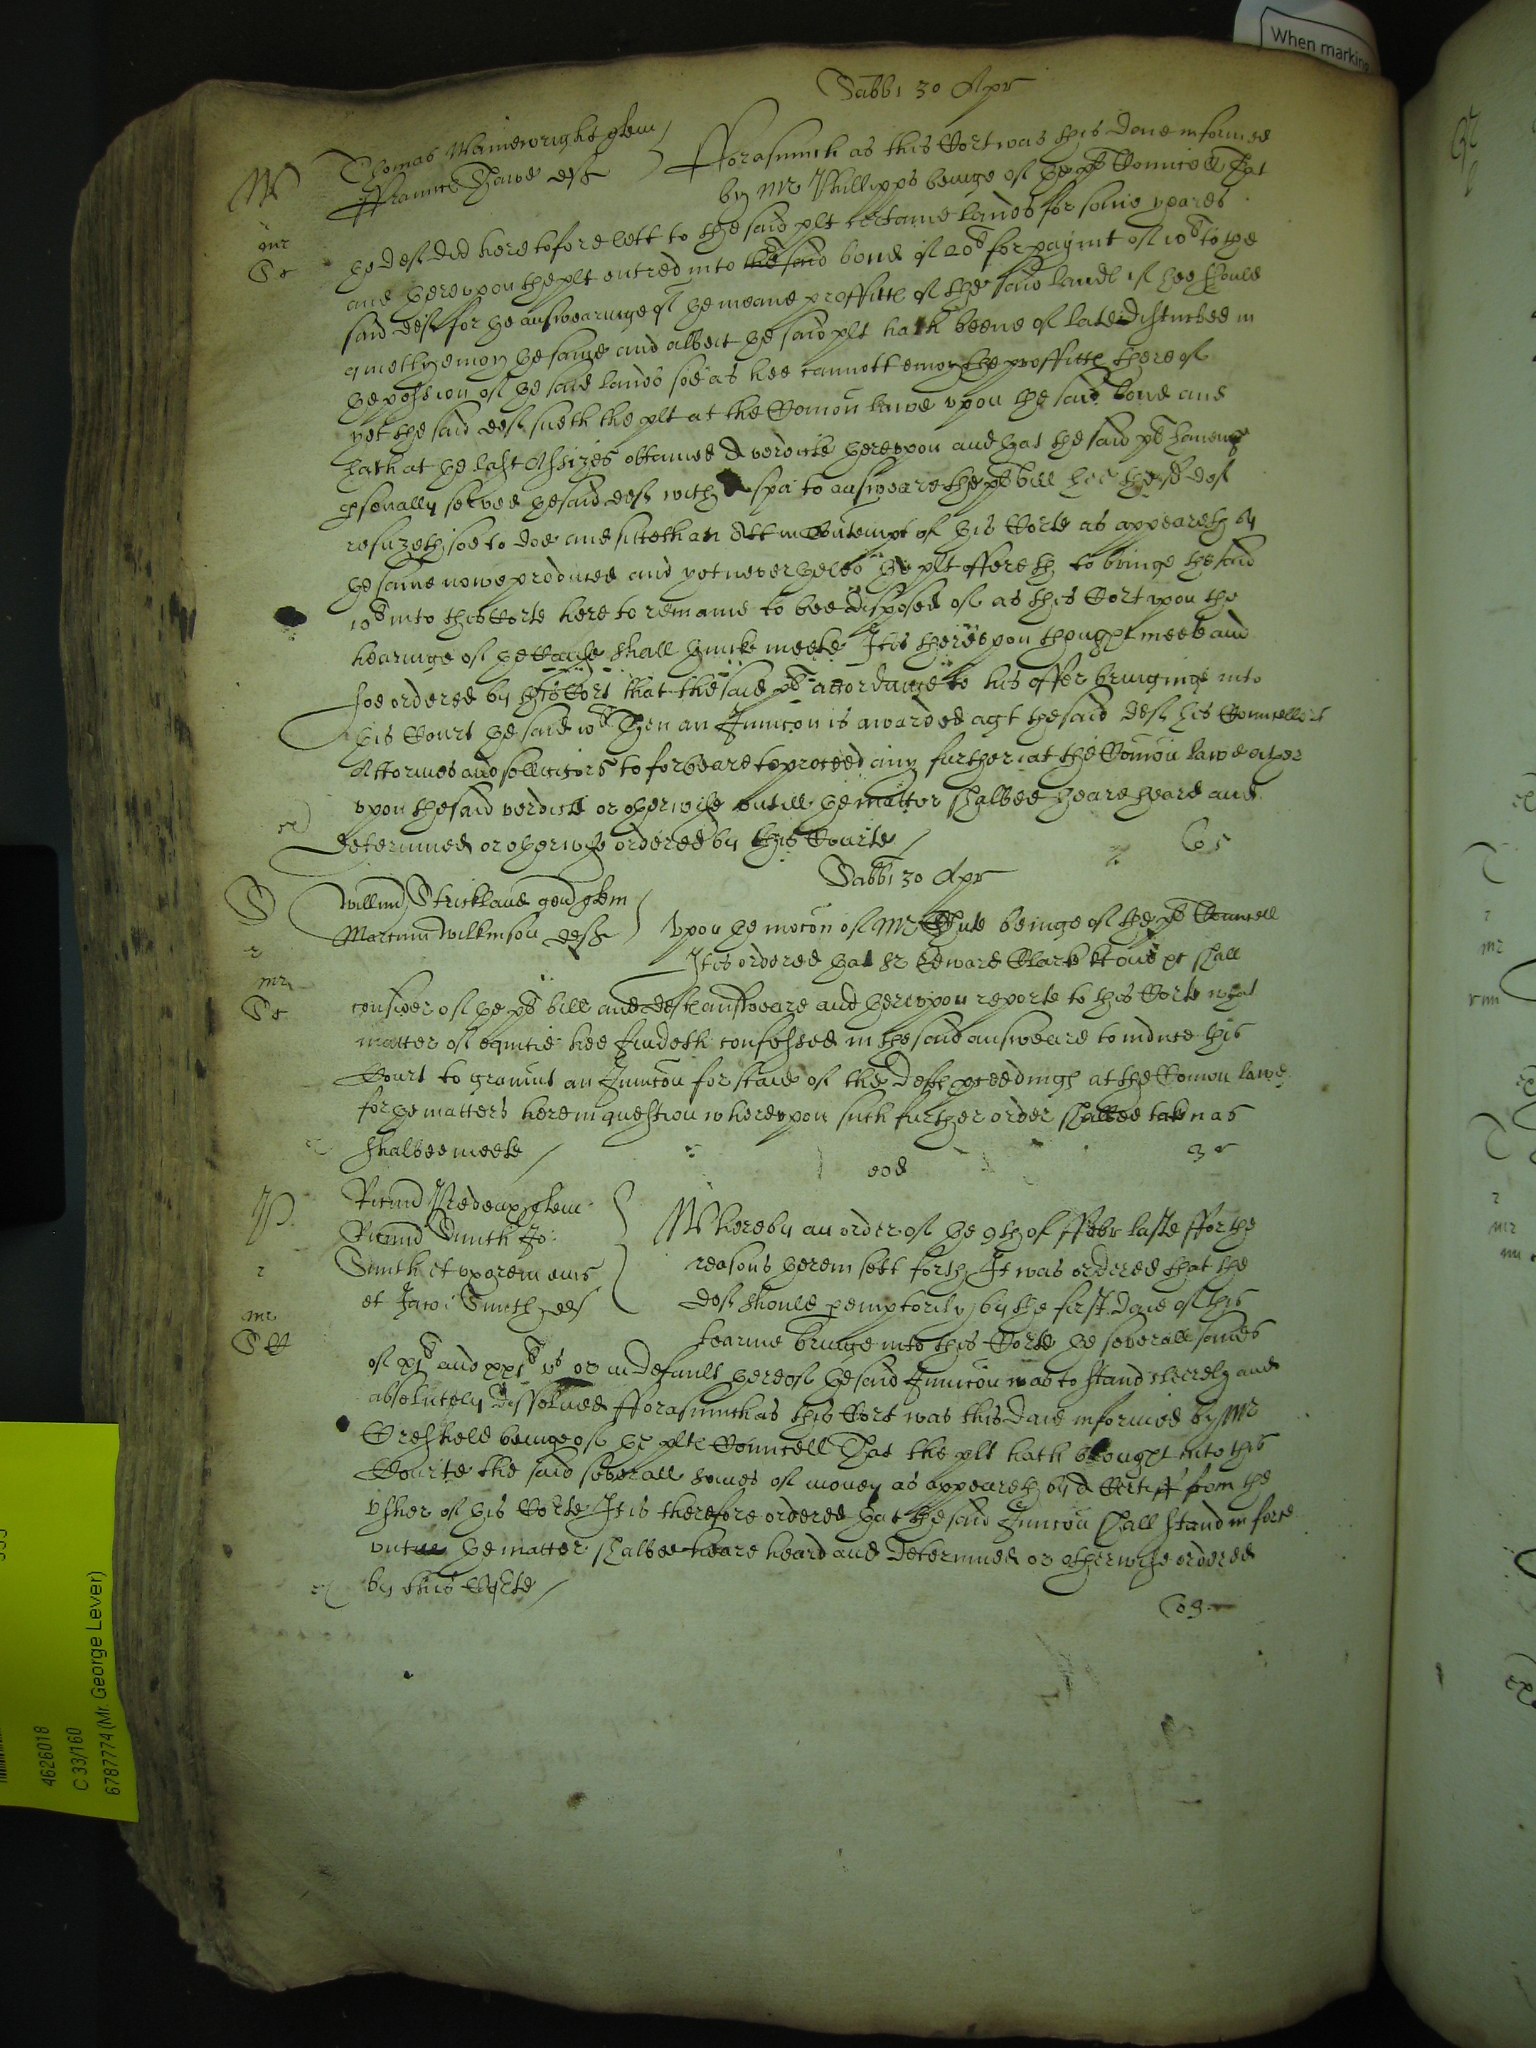 When marking
Sabbi 30 Apr
Thomas Wainewright quer
Fraunces Hawe def
Forasmuch as this Cort was this daie informed
by Mr Phillipps beinge of the plts Councell That
the def did heretofore lett to the said plt certaine lands for some yeares
and therevpon the plt entred into the said bond of 20l for paymt of 10l to the
said def for the answearinge of the meane proffitts of the said lande if hee should
quietly enioy the same and albeit the said plt hath beene of late disturbed in
the possession of the said lands soe as hee cannott enioy the proffitts thereof
yet the said def sueth the plt at the Comon lawe vpon the said bond and
hath at the last Assizes obtained a verdicte therevpon and that the said plt haveing
psonally served the said def with spa to answeare the plts bill hee the sd def
refuzeth soe to doe and sitteth an Att in Contempt of this Corte as appeareth by
the same nowe produced and yet neverthelesse the plt offereth to bringe the said
10l into this Corte here to remaine to bee disposed of as this Cort vpon the
hearinge of the Cause shall thinke meete It is therevpon thought meete and
soe ordered by this Cort that the said plt accordinge to his offer bringinge into
this Court the said 10l Then an Iniuncon is awarded agt the said def his Councellors
Attornies and sollicitors to forbeare to proceed any further at the Comon lawe either
vpon the said verdicte or otherwise vntill the matter shalbee heare heard and
determined or otherwise ordered by this Courte
Sabbi 30 Apr
Willmi Strickland gen quer
Martinu Wilkinson def
Vpon the mocon of Mr beinge of the plts Councell
It is ordered that Sr Edward Clark kt one &c shall
consider of the plts bill and defts answeare and therevpon reporte to this Corte what
matter of equitie hee findeth confessed in the said answeare to induce this
Court to graunt an Iniuncon for staie of the defts pceedings at the Comon lawe
for the matters here in question wherevpon such further order shalbee taken as
shalbee meete
eod
Ricus Prideaux quer
Ricus Smith Jo:
Smith et vxorem eius
et Smith def
Whereby an order of the 9th of Febr laste for the
reasons therein sett forth It was ordered that the
def should pemptorily by the first daie of this
tearme bringe into this Corte the severall somes
of and or in default thereof the said Iniuncon was to stand cleerely and
absolutely dissolued Forasmuch as this Cort was this daie informed by Mr
beinge of the plts Councell That the plt hath brought into this
Courte the said severall somes of money as appeareth by a Certiff from the
Vsher of this Corte It is therefore ordered that the said Iniuncon shall stand in force
vntill the matter shalbee heare heard and determined or otherwise ordered
by this Corte
4626018
C 33/160
6787774 (Mr. George Lever)